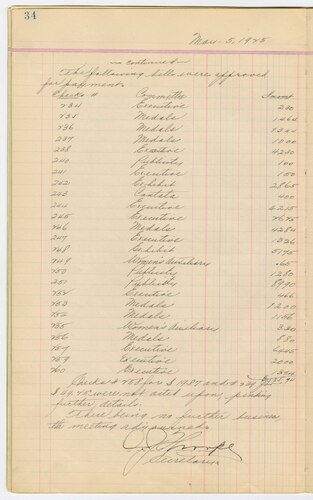 34
Mar 5, 1928
- continued -
The following bills were approved
for payment.
Check # Committee Amount
234 Executive
235 Medals
236 Medals
237 Medals 1000
238 Executive 4250
240 Publicity 100
241 Executive 100
242 Exhibit 2865
243 Cantata 400
244 Executive 6215
245 Executive
246 Medals 4284
247 Executive 1326
248 Exhibit 5195
249 Women's Auxiliary .65
250 Publicity 1280
251 Publicity 8990
252 Executive 466
253 Medals 1200
Medals 1156
255 Women's Auxiliary 330
256 Medals
257 Executive 6445
259 Executive 2000
260 Executive
Checks # 258 for $ 19.87 and # 239 for
$ 49.75 were not acted upon, pending
further details.
There being no further business
the meeting adjourned.
Secretary